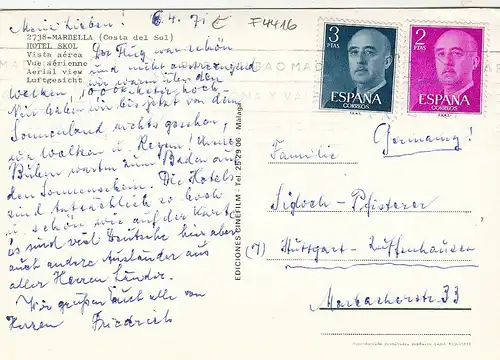 Meine Lieben! 6.4.71 F4416
2738-MARBELLA (Costa del Sol)
HOTEL SKOL
Vista aérea
Vue aérienne
Aerial view
Luftgesicht
Der Flug war schön
und nicht anstrengend
wir waren über den
Wolken, 10000 Meter hoch.
Wir haben hier bis jetzt von dem
Sonnenland nichts gesehen,
nur Wolken u. Regen! Unsere
Buben warten zum Baden auf
den Sonnenschein. Die Hotels
sind tatsächlich so hoch
u. schön wie auf der Karte
es sind viel Deutsche hier aber
auch andere Ausländer aus
aller Herren Länder.
Wir grüßen Euch alle von
Herzen Friedrich
EDICIONES CINEFILM - Tel. 25 29 06 - Málaga
3
PTAS
ESPAÑA
CORREOS
2
PTAS
ESPAÑA
CORREOS
Germany!
Familie
Sigloch-Pfisterer
(7) Stuttgart-Zuffenhausen
Marbacherstr. 33